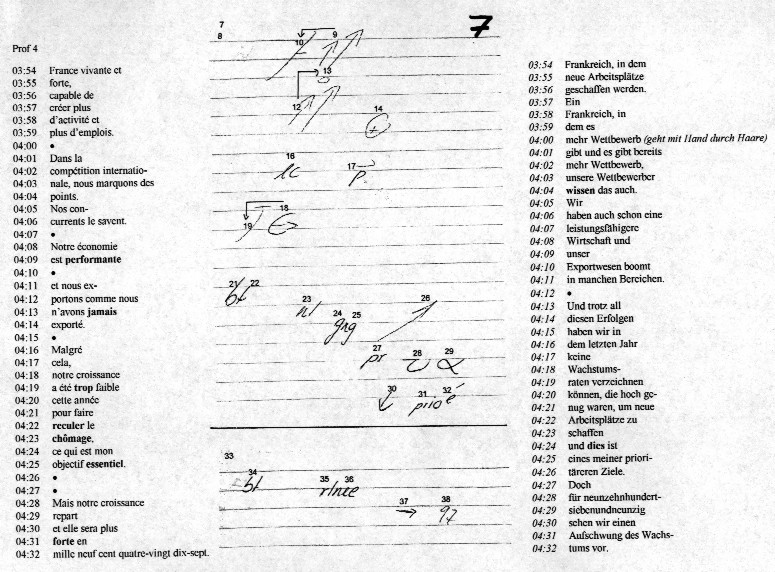 7
7
8
10 9
13
12
14
16
17
lc
p
18
19
21 22
bt
23
nt
24 25
gng
26
27
pr
28 29
30
31 32
prioé
33
34
bt
35 36
37
→
38
97
Prof 4
03:54 France vivante et
03:55 forte,
03:56 capable de
03:57 créer plus
03:58 d'activité et
03:59 plus d'emplois.
04:00 •
04:01 Dans la
04:02 compétition internatio-
04:03 nale, nous marquons des
04:04 points.
04:05 Nos con-
04:06 currents le savent.
04:07 •
04:08 Notre économie
04:09 est performante
04:10 •
04:11 et nous ex-
04:12 portons comme nous
04:13 n'avons jamais
04:14 exporté.
04:15 •
04:16 Malgré
04:17 cela,
04:18 notre croissance
04:19 a été trop faible
04:20 cette année
04:21 pour faire
04:22 reculer le
04:23 chômage,
04:24 ce qui est mon
04:25 objectif essentiel.
04:26 •
04:27 •
04:28 Mais notre croissance
04:29 repart
04:30 et elle sera plus
04:31 forte en
04:32 mille neuf cent quatre-vingt dix-sept.
03:54 Frankreich, in dem
03:55 neue Arbeitsplätze
03:56 geschaffen werden.
03:57 Ein
03:58 Frankreich, in
03:59 dem es
04:00 mehr Wettbewerb (geht mit Hand durch Haare)
04:01 gibt und es gibt bereits
04:02 mehr Wettbewerb,
04:03 unsere Wettbewerber
04:04 wissen das auch.
04:05 Wir
04:06 haben auch schon eine
04:07 leistungsfähigere
04:08 Wirtschaft und
04:09 unser
04:10 Exportwesen boomt
04:11 in manchen Bereichen.
04:12 •
04:13 Und trotz all
04:14 diesen Erfolgen
04:15 haben wir in
04:16 dem letzten Jahr
04:17 keine
04:18 Wachstums-
04:19 raten verzeichnen
04:20 können, die hoch ge-
04:21 nug waren, um neue
04:22 Arbeitsplätze zu
04:23 schaffen
04:24 und dies ist
04:25 eines meiner priori-
04:26 täreren Ziele.
04:27 Doch
04:28 für neunzehnhundert-
04:29 siebenundneunzig
04:30 sehen wir einen
04:31 Aufschwung des Wachs-
04:32 tums vor.